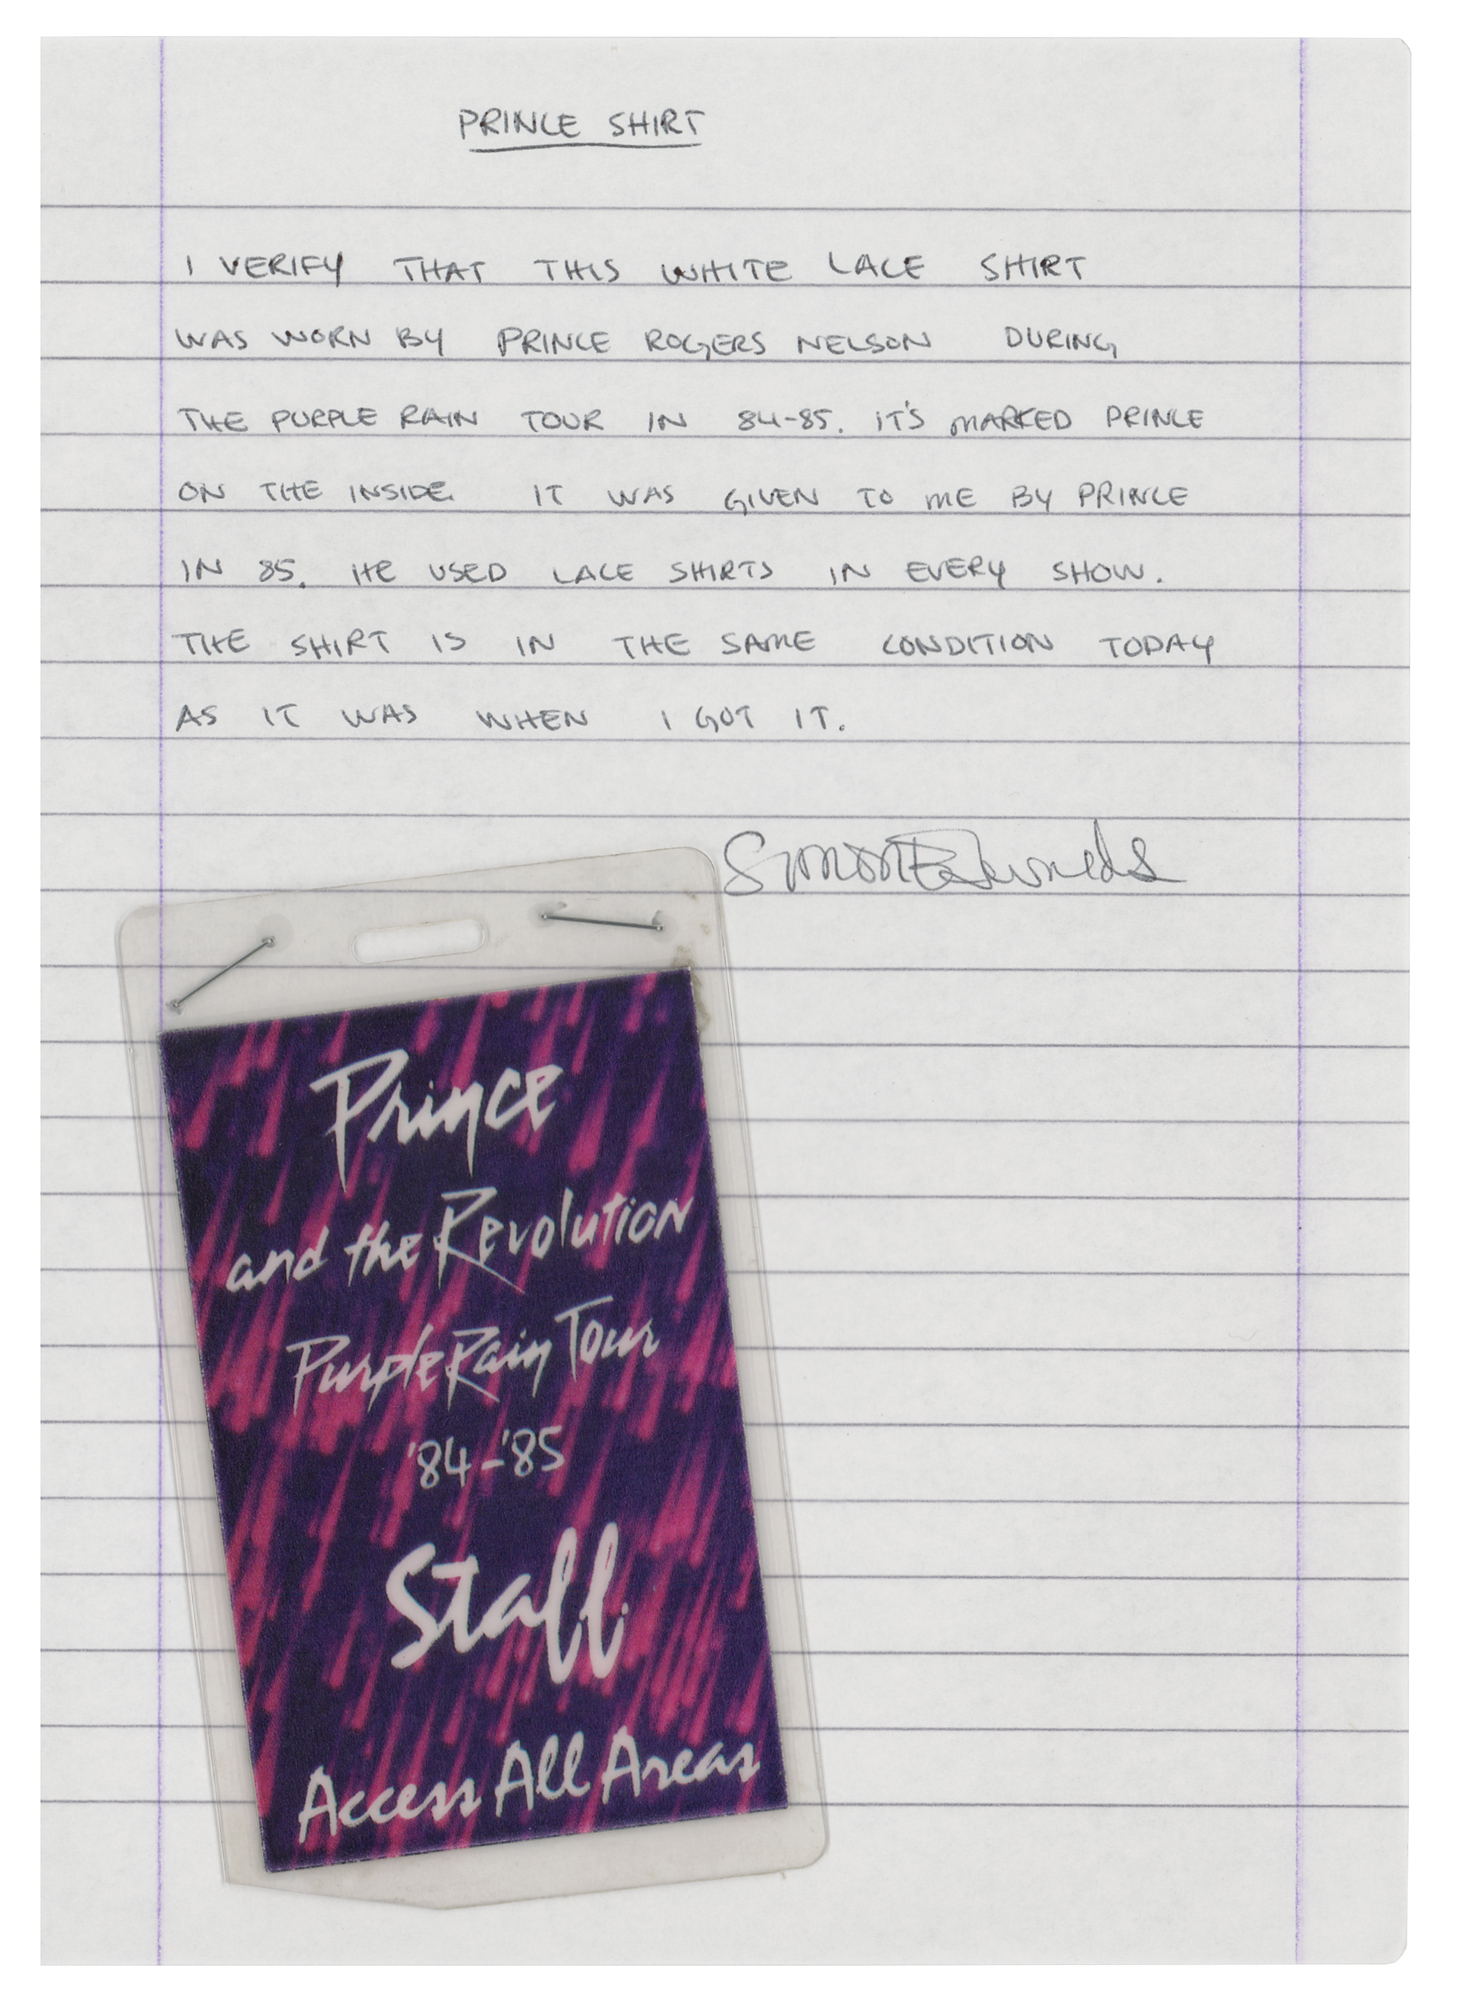 PRINCE SHIRT
I VERIFY THAT THIS WHITE LACE SHIRT
WAS WORN BY PRINCE ROGERS NELSON DURING
THE PURPLE RAIN TOUR IN 84-85. IT'S MARKED PRINCE
ON THE INSIDE. IT WAS GIVEN TO ME BY PRINCE
IN 85. HE USED LACE SHIRTS IN EVERY SHOW.
THE SHIRT IS IN THE SAME CONDITION TODAY
AS IT WAS WHEN I GOT IT.
Simon Edwards
Prince
and the Revolution
Purple Rain Tour
'84-'85
Staff
Access All Areas